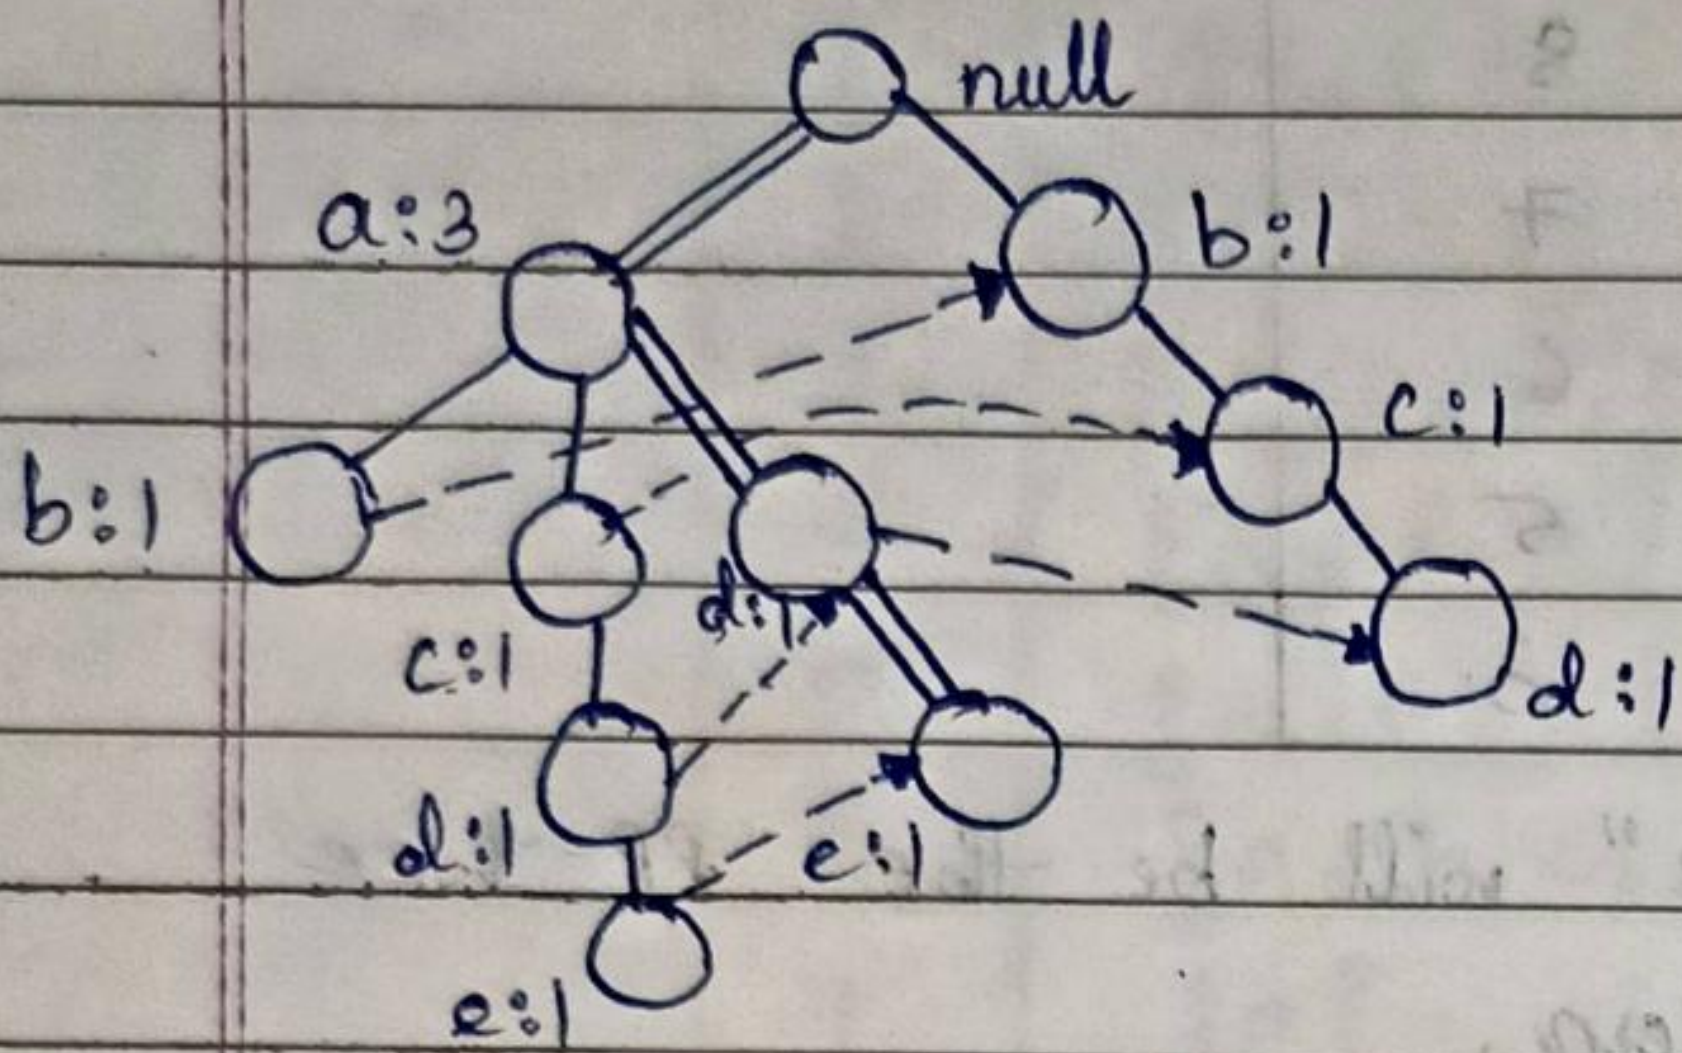 null
a:3
b:1
c:1
b:1
d:1
c:1
d:1
d:1
e:1
e:1